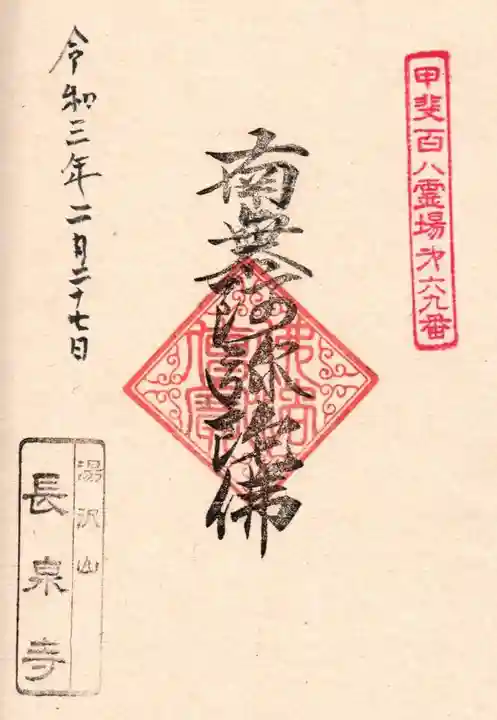 甲斐百八霊場第六九番
南無阿弥陀佛
令和三年二月二十七日
湯沢山
長泉寺